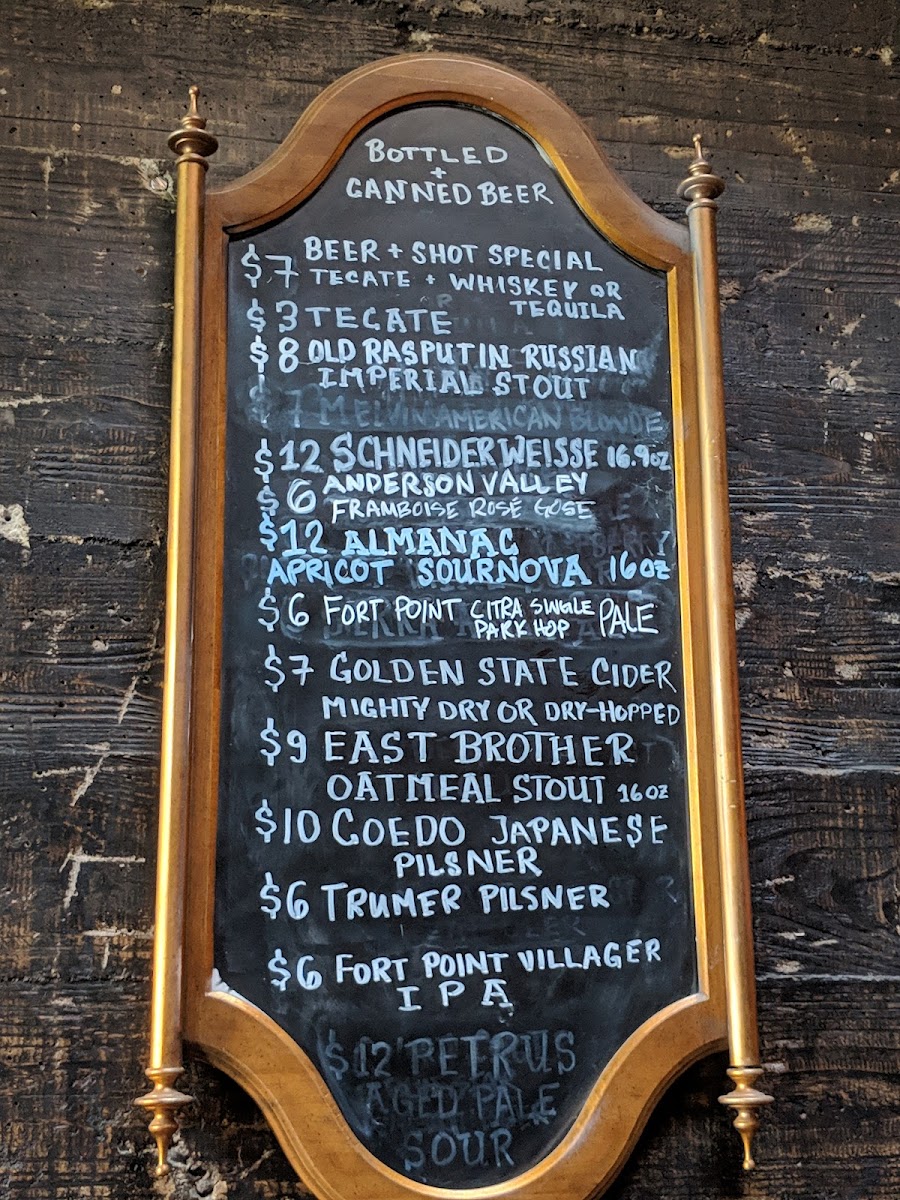 BOTTLED
+
CANNED BEER
$7 BEER + SHOT SPECIAL
TECATE + WHISKEY OR
TEQUILA
$3 TECATE
$8 OLD RASPUTIN RUSSIAN
IMPERIAL STOUT
$7 MELVIN AMERICAN BLONDE
$12 SCHNEIDER WEISSE 16.9OZ
$6 ANDERSON VALLEY
FRAMBOISE ROSÉ GOSE
$12 ALMANAC
APRICOT SOURNOVA 16OZ
$6 FORT POINT CITRA SINGLE PALE
PARK HOP
$7 GOLDEN STATE CIDER
MIGHTY DRY OR DRY-HOPPED
$9 EAST BROTHER
OATMEAL STOUT 16OZ
$10 COEDO JAPANESE
PILSNER
$6 TRUMER PILSNER
$6 FORT POINT VILLAGER
IPA
$12 PETRUS
AGED PALE
SOUR